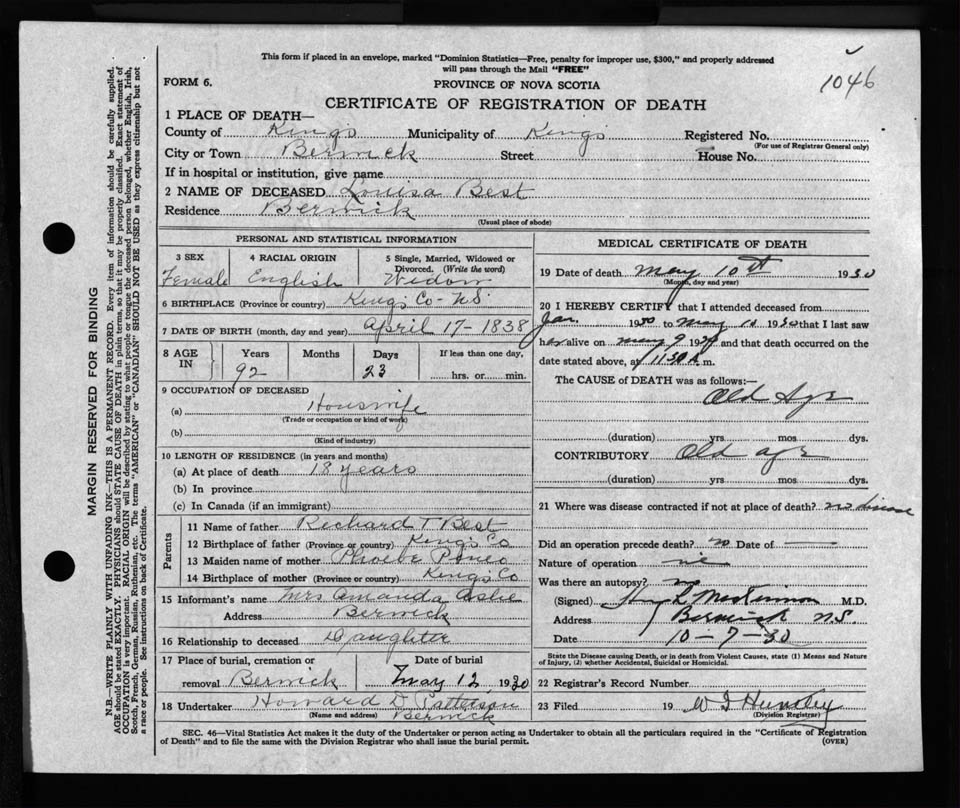 This form if placed in an envelope, marked "Dominion Statistics—Free, penalty for improper use, $300," and properly addressed
will pass through the Mail "FREE"
1046
FORM 6.
PROVINCE OF NOVA SCOTIA
CERTIFICATE OF REGISTRATION OF DEATH
1 PLACE OF DEATH—
County of Kings Municipality of Kings Registered No.
(For use of Registrar General only)
City or Town Berwick Street House No.
If in hospital or institution, give name
2 NAME OF DECEASED Louisa Best
Residence Berwick
(Usual place of abode)
PERSONAL AND STATISTICAL INFORMATION
3 SEX 4 RACIAL ORIGIN 5 Single, Married, Widowed or
Divorced. (Write the word)
Female English Widow
6 BIRTHPLACE (Province or country) King's Co - N.S.
7 DATE OF BIRTH (month, day and year) April 17 - 1838
8 AGE IN Years Months Days If less than one day,
92 - 23 hrs. or min.
9 OCCUPATION OF DECEASED
(a) Housewife
(Trade or occupation or kind of work)
(b)
(Kind of industry)
10 LENGTH OF RESIDENCE (in years and months)
(a) At place of death 18 years
(b) In province
(c) In Canada (if an immigrant)
Parents
11 Name of father Richard T Best
12 Birthplace of father (Province or country) King's Co
13 Maiden name of mother Phoebe
14 Birthplace of mother (Province or country) King's Co
15 Informant's name Mrs Amanda
Address Berwick
16 Relationship to deceased Daughter
17 Place of burial, cremation or Date of burial
removal Berwick May 12, 1930
18 Undertaker Howard D Patterson
(Name and address) Berwick
MEDICAL CERTIFICATE OF DEATH
19 Date of death May 10th 1930
(Month, day and year)
20 I HEREBY CERTIFY that I attended deceased from
Jan. 1930 to May 10 1930 that I last saw
her alive on May 9 19 and that death occurred on the
date stated above, at 11.30 m.
The CAUSE OF DEATH was as follows:—
Old Age
(duration) yrs. mos. dys.
CONTRIBUTORY Old age
(duration) yrs. mos. dys.
21 Where was disease contracted if not at place of death? no disease
Did an operation precede death? no Date of
Nature of operation
Was there an autopsy? no
(Signed) M.D.
Address Berwick N.S.
Date 10-7-30
State the Disease causing Death, or in death from Violent Causes, state (1) Means and Nature
of Injury, (2) whether Accidental, Suicidal or Homicidal.
22 Registrar's Record Number
23 Filed 19
(Division Registrar)
SEC. 46—Vital Statistics Act makes it the duty of the Undertaker or person acting as Undertaker to obtain all the particulars required in the "Certificate of Registration
of Death" and to file the same with the Division Registrar who shall issue the burial permit.
(OVER)
MARGIN RESERVED FOR BINDING
N.B.—WRITE PLAINLY WITH UNFADING INK—THIS IS A PERMANENT RECORD. Every item of information should be carefully supplied.
AGE should be stated EXACTLY. PHYSICIANS should STATE CAUSE OF DEATH in plain terms, so that it may be properly classified. Exact statement of
OCCUPATION is very important. RACIAL ORIGIN will be described by stating to what people or tongue the deceased person belonged, whether English, Irish,
Scotch, French, German, Russian, Ruthenian, etc. The terms "AMERICAN" or "CANADIAN" SHOULD NOT BE USED as they express citizenship but not
a race or people. See instructions on back of Certificate.